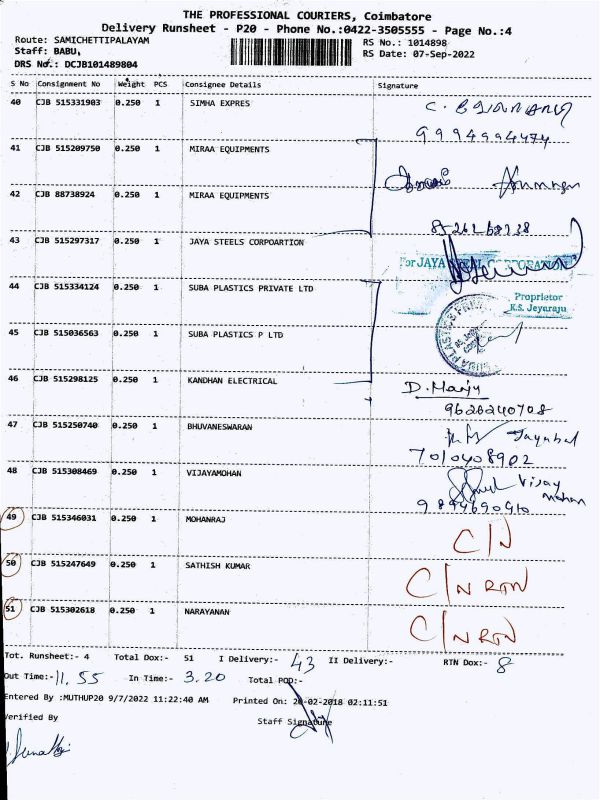 THE PROFESSIONAL COURIERS, Coimbatore
Delivery Runsheet - P20 - Phone No.:0422-3505555 - Page No.:4
Route: SAMICHETTIPALAYAM RS No.: 1014898
Staff: BABU, RS Date: 07-Sep-2022
DRS No.: DCJB101489804
S No Consignment No Weight PCS Consignee Details Signature
40 CJB 515331903 0.250 1 SIMHA EXPRES
9994994474
41 CJB 515209750 0.250 1 MIRAA EQUIPMENTS
42 CJB 88738924 0.250 1 MIRAA EQUIPMENTS
43 CJB 515297317 0.250 1 JAYA STEELS CORPOARTION
For JAYA STEEL CORPORATION
44 CJB 515334124 0.250 1 SUBA PLASTICS PRIVATE LTD
Proprietor
K.S. Jeyaraju
45 CJB 515036563 0.250 1 SUBA PLASTICS P LTD
46 CJB 515298125 0.250 1 KANDHAN ELECTRICAL D. Manju
9628240708
47 CJB 515250740 0.250 1 BHUVANESWARAN Jayabal
7010408902
48 CJB 515308469 0.250 1 VIJAYAMOHAN Vijay
mohan
9894690910
49 CJB 515346031 0.250 1 MOHANRAJ C/N
50 CJB 515247649 0.250 1 SATHISH KUMAR C/N RTN
51 CJB 515302618 0.250 1 NARAYANAN C/N RTN
Tot. Runsheet:- 4 Total Dox:- 51 I Delivery:- 43 II Delivery:- RTN Dox:- 8
Out Time:- 11.55 In Time:- 3.20 Total POD:-
Entered By :MUTHUP20 9/7/2022 11:22:40 AM Printed On: 20-02-2018 02:11:51
Verified By Staff Signature